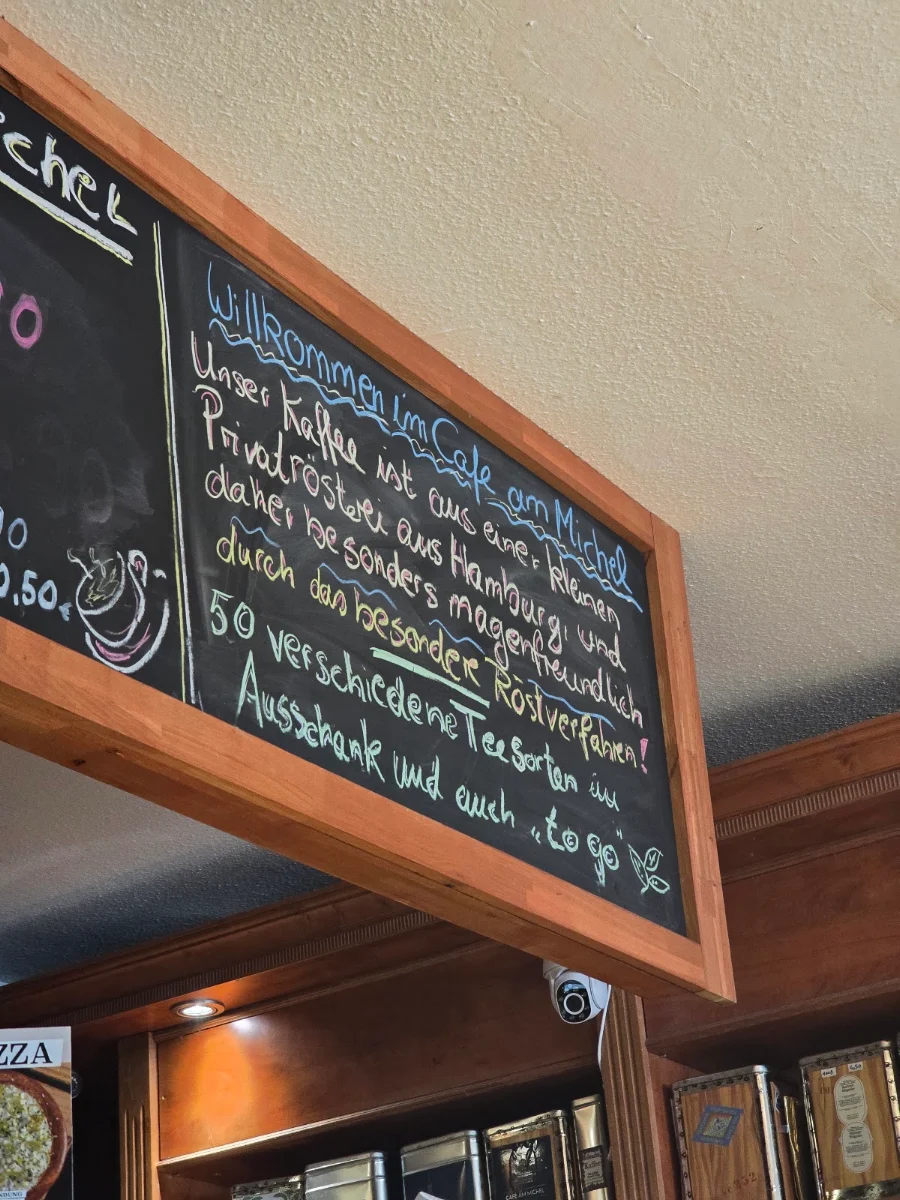 Willkommen im Cafe am Michel
Unser Kaffee ist aus einer kleinen
Privatrösterei aus Hamburg, und
daher besonders magenfreundlich
durch das besondere Röstverfahren!
50 verschiedene Teesorten im
Ausschank und auch „to go"
chel
0,50€
ZZA
CAFE AM MICHEL